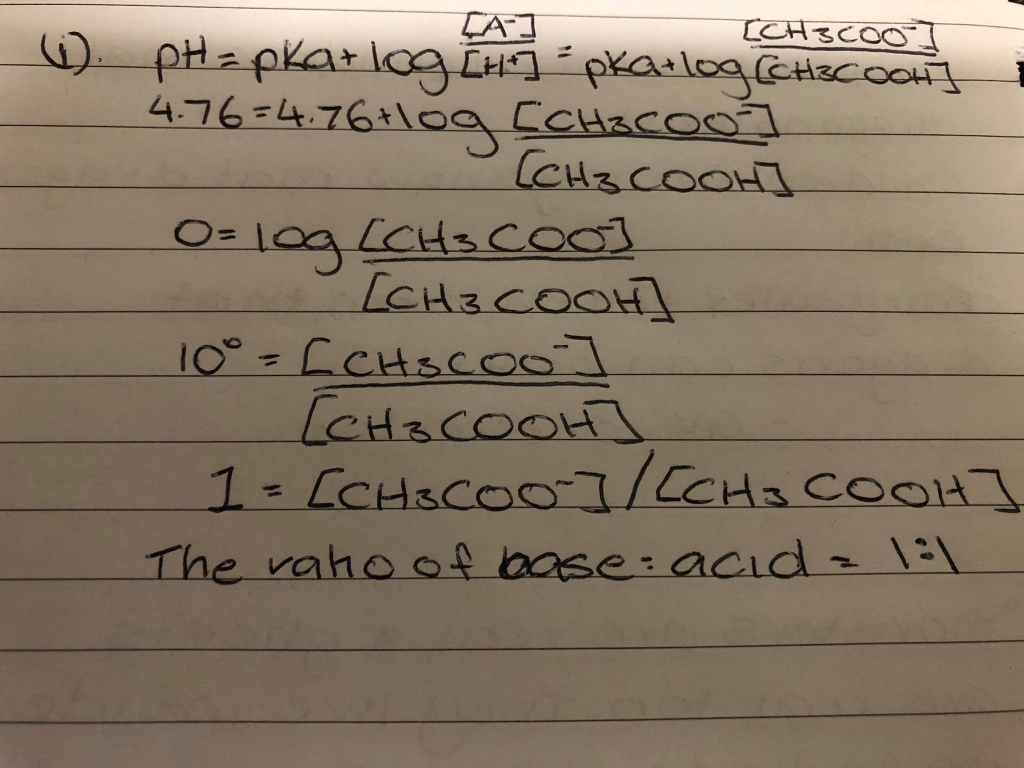 (i). pH = pKa + log [A⁻]/[H⁺] = pKa + log [CH3COO⁻]/[CH3COOH]
4.76 = 4.76 + log [CH3COO⁻]
[CH3COOH]
0 = log [CH3COO⁻]
[CH3COOH]
10⁰ = [CH3COO⁻]
[CH3COOH]
1 = [CH3COO⁻] / [CH3COOH]
The ratio of base : acid = 1:1